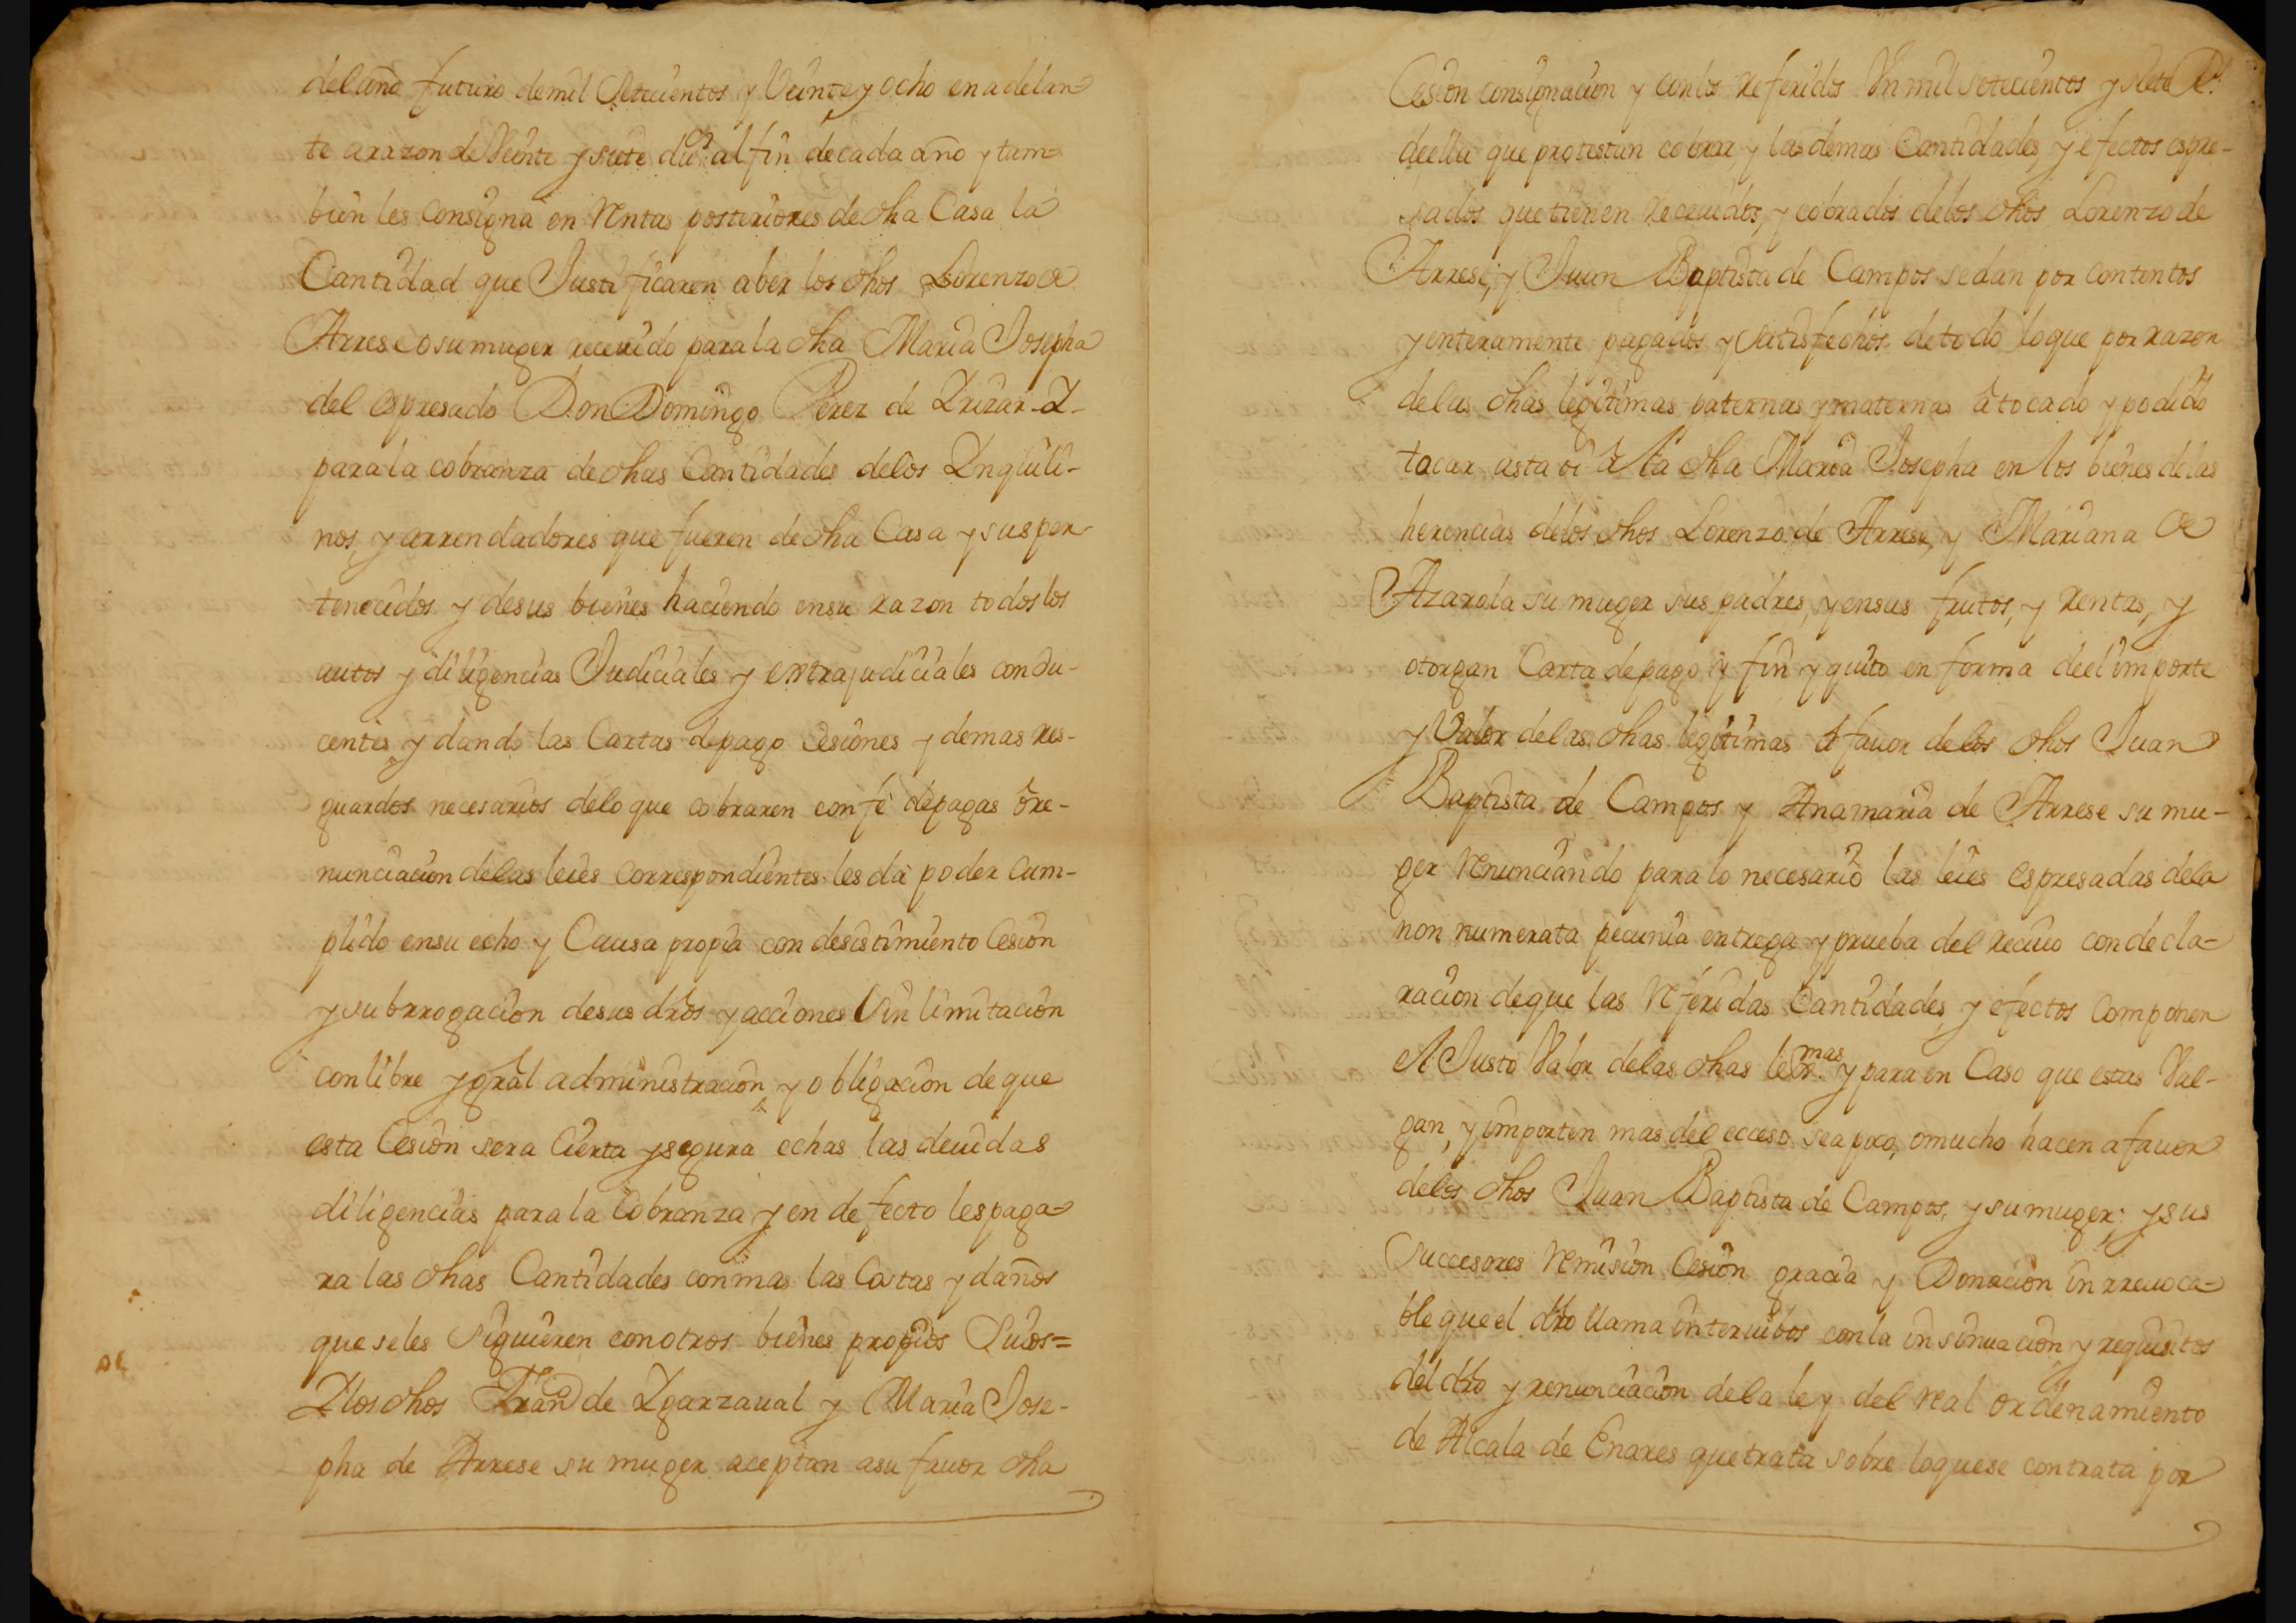 del año futuro de mil Setecientos y Veinte y ocho en adelan
te a razon de Veinte y siete duˢ al fin de cada año y tam
bien les Consigna en Rentas posteriores de dha Casa la
Cantidad que Justificaren aber los dhos Lorenzo de
Arrese o su muger receuido para la dha Maria Josepha
del espresado Don Domingo Perez de Yrizar - Y -
para la cobranza de dhas Cantidades de los Ynquili-
nos, y arrendadores que fueren de dha Casa y sus per
tenecidos y de sus bienes haciendo en su razon todos los
autos y diligencias Judiciales y extrajudiciales condu-
centes y dando las Cartas de pago Cesiones y demas res-
guardos necesarios de lo que cobraren con fe de pagas ô re-
nunciacion de las leies correspondientes les dâ poder Cum-
plido en su echo y Causa propia con desistimiento Cesion
y subrrogacion de sus drōs y acciones Sin limitacion
con libre y grāl administracion, y obligacion de que
esta Cesion sera Cierta y segura echas las deuidas
diligencias para la Cobranza y en defecto les paga-
ra las dhas Cantidades con mas las Costas y daños
que se les Siguieren con otros bienes propios Suios=
Y los dhos Franᶜᵒ de Ygarzaual y Maria Jose-
pha de Arrese su muger aceptan a su fauor dha
Cesion consignacion y con los referidos Un mil setecientos y siete Rˢ
de ella que protestan cobrar, y las demas Cantidades, y efectos espre-
sados que tienen receuidos, y cobrados de los dhos Lorenzo de
Arrese, y Juan Baptista de Campos se dan por contentos
y enteramente pagados y Satisfechos de todo lo que por razon
de las dhas legitimas paternas y maternas â tocado y podido
tocar asta oi â la dha Maria Josepha en los bienes de las
herencias de los dhos Lorenzo de Arrese, y Mariana de
Azarola su muger sus padres, y en sus frutos, y Rentas, y
otorgan Carta de pago y fin y quito en forma de el importe
y Valor de las dhas legitimas â fauor de los dhos Juan
Baptista de Campos y Anamaria de Arrese su mu-
ger Renunciando para lo necesario las leies espresadas de la
non numerata pecunia entrega y prueba del reciuo con decla-
racion de que las Referidas Cantidades, y efectos componen
el Justo Valor de las dhas leᵐᵃˢ. y para en Caso que estas Val-
gan, y importen mas del ecceso sea poco, o mucho hacen a fauor
de los dhos Juan Baptista de Campos, y su muger; y sus
Succesores Remision Cesion gracia y Donacion inrreuoca-
ble que el dro llama interuibos con la insinuacion y requisitos
del dro y renunciacion de la ley del real ordenamiento
de Alcala de Enares que trata sobre lo que se contrata por